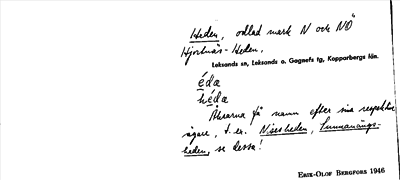 Heden, odlad mark N och NÖ
Hjortnäs-Heden.
Leksands sn, Leksands o. Gagnefs tg, Kopparbergs län.
éda
héda
Åkrarna få namn efter sina respektive
ägare, t. ex. Nisesheden, Sunnanängs-
heden, se dessa!
ERIK-OLOF BERGFORS 1946